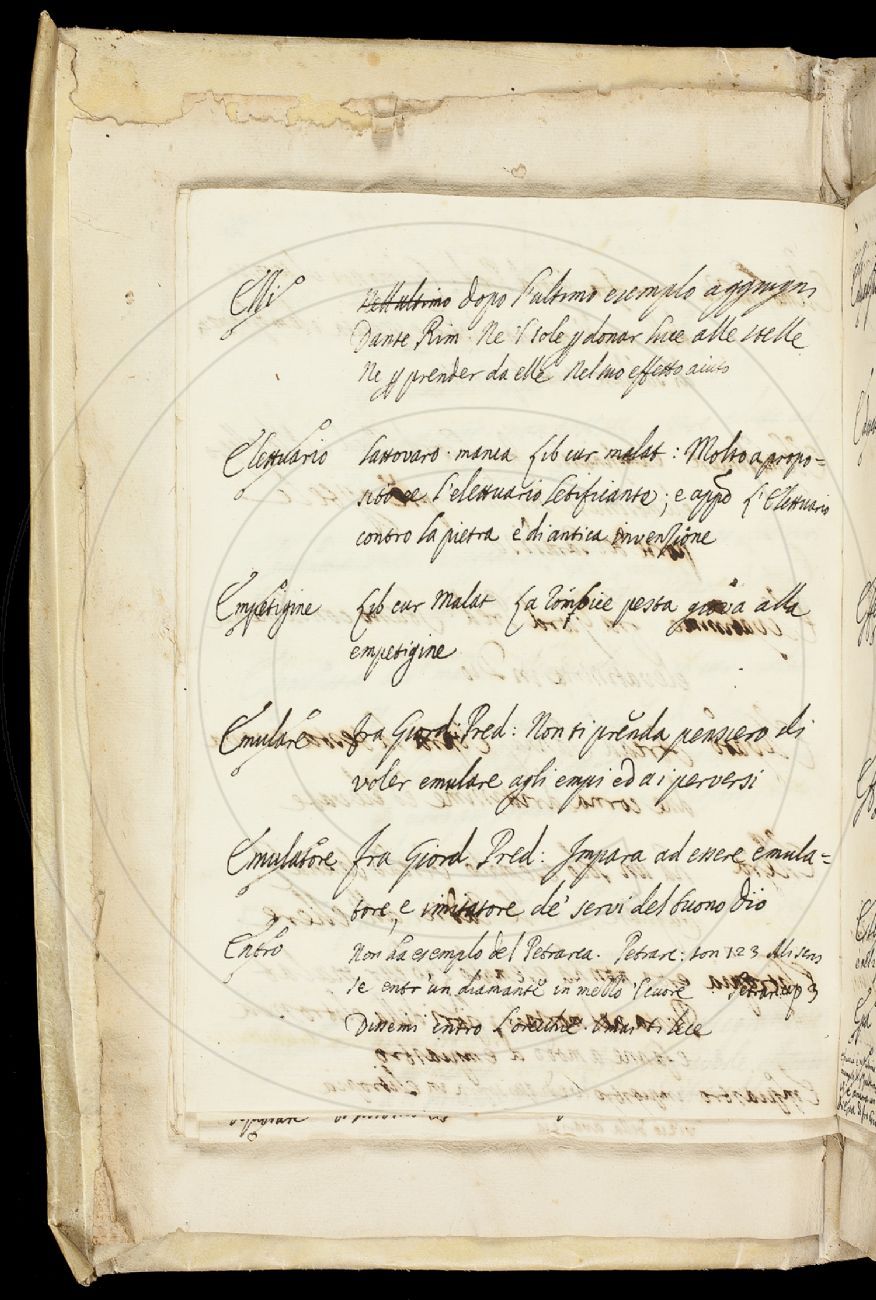 Elli ~~Nell'ultimo~~ dopo l'ultimo esempio aggiugni
Dante Rim. Ne 'l sole p donar luce alle stelle
Ne p prender da elle Nel suo effetto aiuto
Elettuario lattovaro. manca Lib cur malat: Molto a propo=
sito e l'elettuario letificante; e app̃o L'Elettuario
contro la pietra è di antica invenzione
Empetigine Lib cur Malat La Pomice pesta giova alla
empetigine
Emulare fra Giord: Pred: Non ti prenda pensiero di
voler emulare agli empi ed a i perversi
Emulatore fra Giord Pred: Impara ad essere emula=
tore, e imitatore de' servi del buono Dio
Entro Non ha esempio del Petrarca. Petrarc: son 123
e entr' un diamante in mezzo 'l cuore Petrar cap 3
Dissemi entro l'orecchie